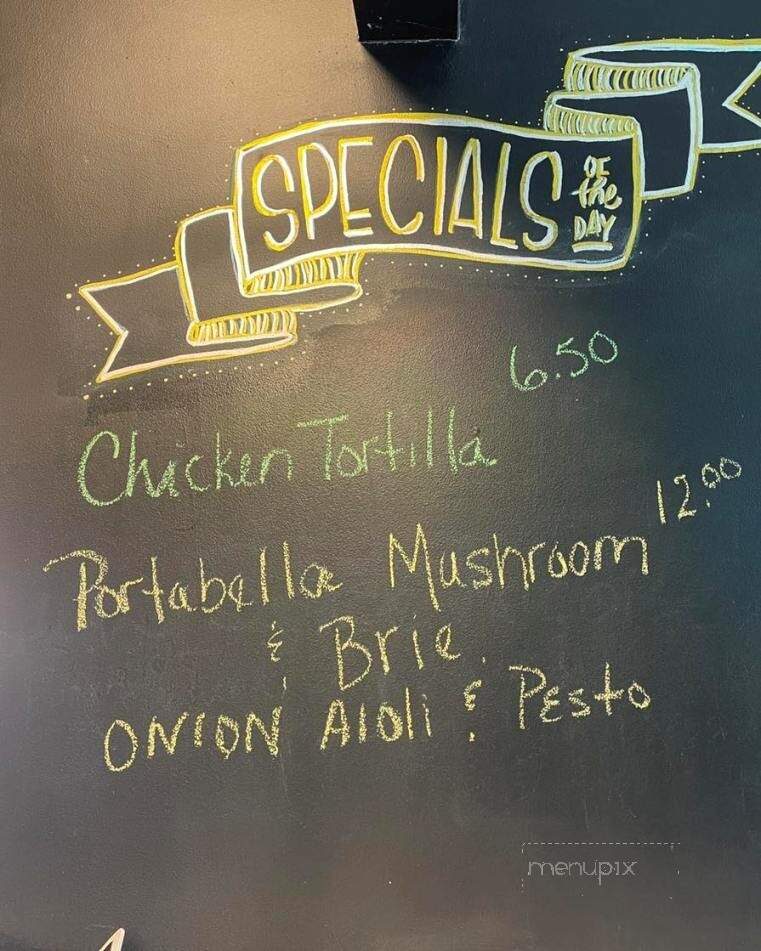 SPECIALS OF the DAY
6.50
Chicken Tortilla
12.00
Portabella Mushroom
& Brie.
ONION AIOLI & PESTO
menupix